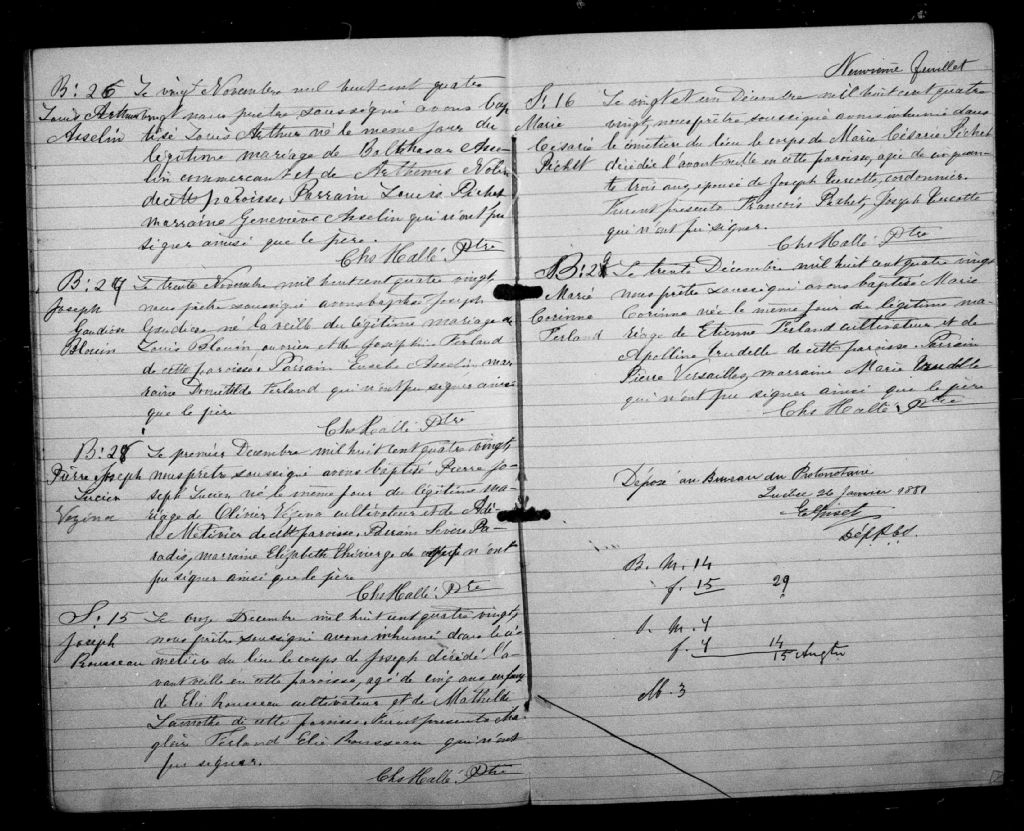 B: 26 Le vingt Novembre mil huit cent quatre
Louis Arthur vingt nous prêtre soussigné avons bap
Asselin tisé Louis Arthur né le même jour du
légitime mariage de Balthasar Asse
lin commercant et de Arthemis Nolin
de cette paroisse, Parrain Louis Pichet
marraine Geneviève Asselin qui n'ont pu
signer ainsi que le père.
Chs Hallé Ptre
B: 27 Le trente Novembre mil huit cent quatre vingt
Joseph nous prêtre soussigné avons baptisé Joseph
Gaudiose Gaudiose né la veille du légitime mariage de
Blouin Louis Blouin, ouvrier et de Josephine Ferland
de cette paroisse Parrain Eusebe Asselin mar
raine Ferland qui n'ont pu signer ainsi
que le père
Chs Hallé Ptre
B: 28 Le premier Decembre mil huit cent quatre vingt,
Pierre Joseph nous prêtre soussigné avons baptisé Pierre Jo-
Lucien seph Lucien né le même jour du légitime ma-
Vezina riage de Olivier Vezina cultivateur et de Adè
le Metivier de cette paroisse, Parrain Sévère Pa-
radis, marraine Elizabeth Thivierge de n'ont
pu signer ainsi que le père
Chs Hallé Ptre
S: 15 Le onze Decembre mil huit cent quatre vingt,
Joseph nous prêtre soussigné avons inhumé dans le ci
Rousseau metière du lieu le corps de Joseph décédé l'a-
vant veille en cette paroisse, agé de cinq ans enfant
de Elie Rousseau cultivateur et de Mathilde
Lamothe de cette paroisse. Furent presents Ma
gloire Ferland Elie Rousseau qui n'ont
pu signer.
Chs Hallé Ptre
Neuvième feuillet
S: 16 Le vingt et un Décembre mil huit cent quatre
Marie vingt, nous prêtre soussigné avons inhumé dans
Césarie le cimetière du lieu le corps de Marie Césarie Pichet
Pichet décédée l'avant veille en cette paroisse, agée de cinquan-
te trois ans epouse de Joseph Turcotte, cordonnier.
Furent presents Francois Pichet, Joseph Turcotte
qui n'ont pu signer.
Chs Hallé Ptre
B: 29 Le trente Décembre mil huit cent quatre vingt
Marie nous prêtre soussigné avons baptisé Marie
Corinne Corinne née le même jour du légitime ma-
Ferland riage de Etienne Ferland cultivateur et de
Apolline Trudelle de cette paroisse Parrain
Pierre Versailles, marraine Marie Trudelle
qui n'ont pu signer ainsi que le père
Chs Hallé Ptre
Déposé au Bureau du Protonotaire
Québec 26 Janvier 1881
B. M. 14
f. 15 29
S. M. 7
f. 7 14
15
M. 3